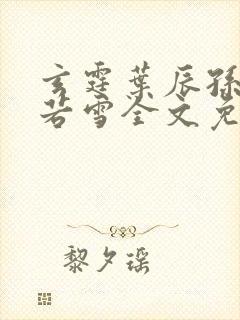 玄霆葉辰孫
若雪全文免
黎夕瑶